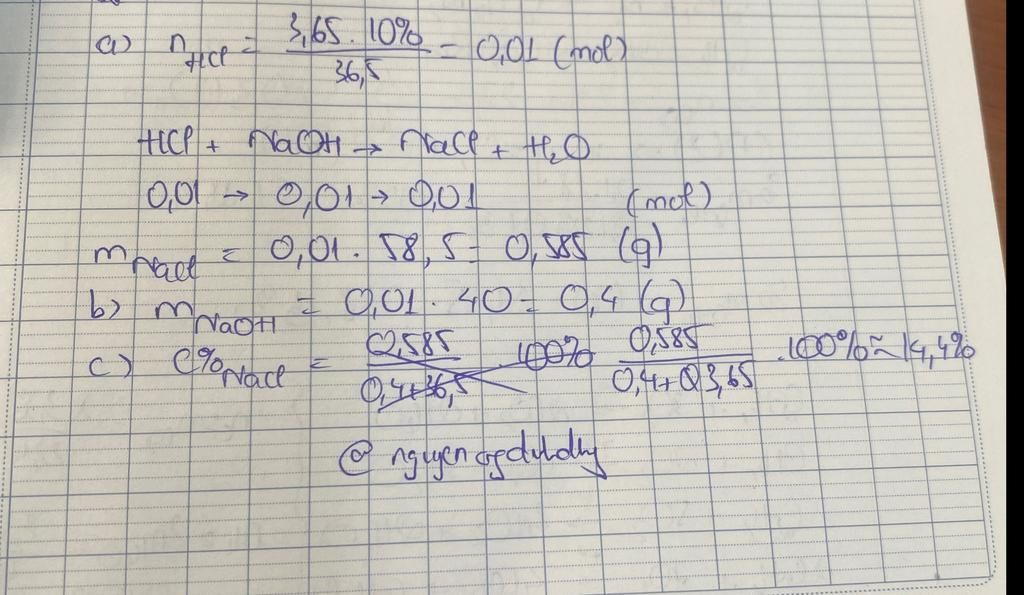 a) n HCl = 3,65 . 10% / 36,5 = 0,01 (mol)
HCl + NaOH → NaCl + H₂O
0,01 → 0,01 → 0,01 (mol)
m NaCl = 0,01 . 58,5 = 0,585 (g)
b) m NaOH = 0,01 . 40 = 0,4 (g)
c) C% NaCl = 0,585 / 0,4+36,5 100% 0,585 / 0,4+3,65 .100% ≈ 14,4%
@ nguyen